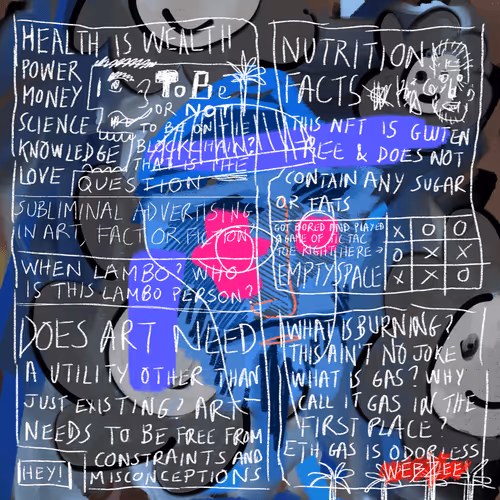 HEALTH IS WEALTH
POWER
MONEY
SCIENCE
KNOWLEDGE
LOVE
TO BE
OR NO
TO BE ON THE
BLOCKCHAIN?
THAT IS THE
QUESTION
SUBLIMINAL ADVERTISING
IN ART FACT OR FICTION
WHEN LAMBO? WHO
IS THIS LAMBO PERSON?
DOES ART NEED
A UTILITY OTHER THAN
JUST EXISTING? ART
NEEDS TO BE FREE FROM
CONSTRAINTS AND
MISCONCEPTIONS
HEY!
NUTRITION
FACTS
THIS NFT IS GLUTEN
FREE & DOES NOT
CONTAIN ANY SUGAR
OR FATS
GOT BORED AND PLAYED
A GAME OF TIC TAC
TOE RIGHT HERE →
EMPTY SPACE
X O O
O X X
O X X
WHAT IS BURNING?
THIS AIN'T NO JOKE
WHAT IS GAS? WHY
CALL IT GAS IN THE
FIRST PLACE?
ETH GAS IS ODORLESS